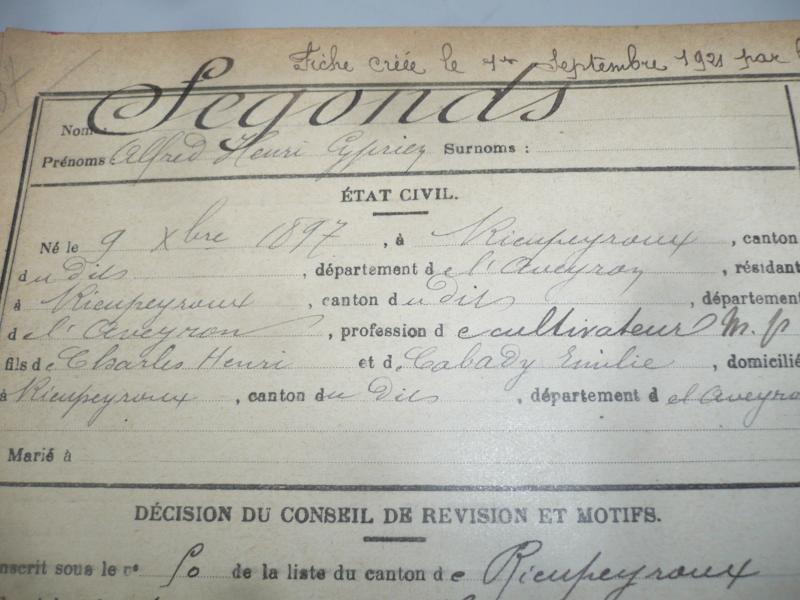 Fiche créée le 1er Septembre 1921 par
Nom: Segonds
Prénoms: Alfred Henri Cyprien Surnoms :
ÉTAT CIVIL.
Né le 9 Xbre 1897, à Rieupeyroux, canton
du dit, département de l'Aveyron, résidant
à Rieupeyroux, canton du dit, département
de l'Aveyron, profession de cultivateur M. p
fils de Charles Henri et de Cabady Emilie, domicilié
à Rieupeyroux, canton du dit, département de l'Aveyron
Marié à
DÉCISION DU CONSEIL DE REVISION ET MOTIFS.
nscrit sous le no 50 de la liste du canton de Rieupeyroux